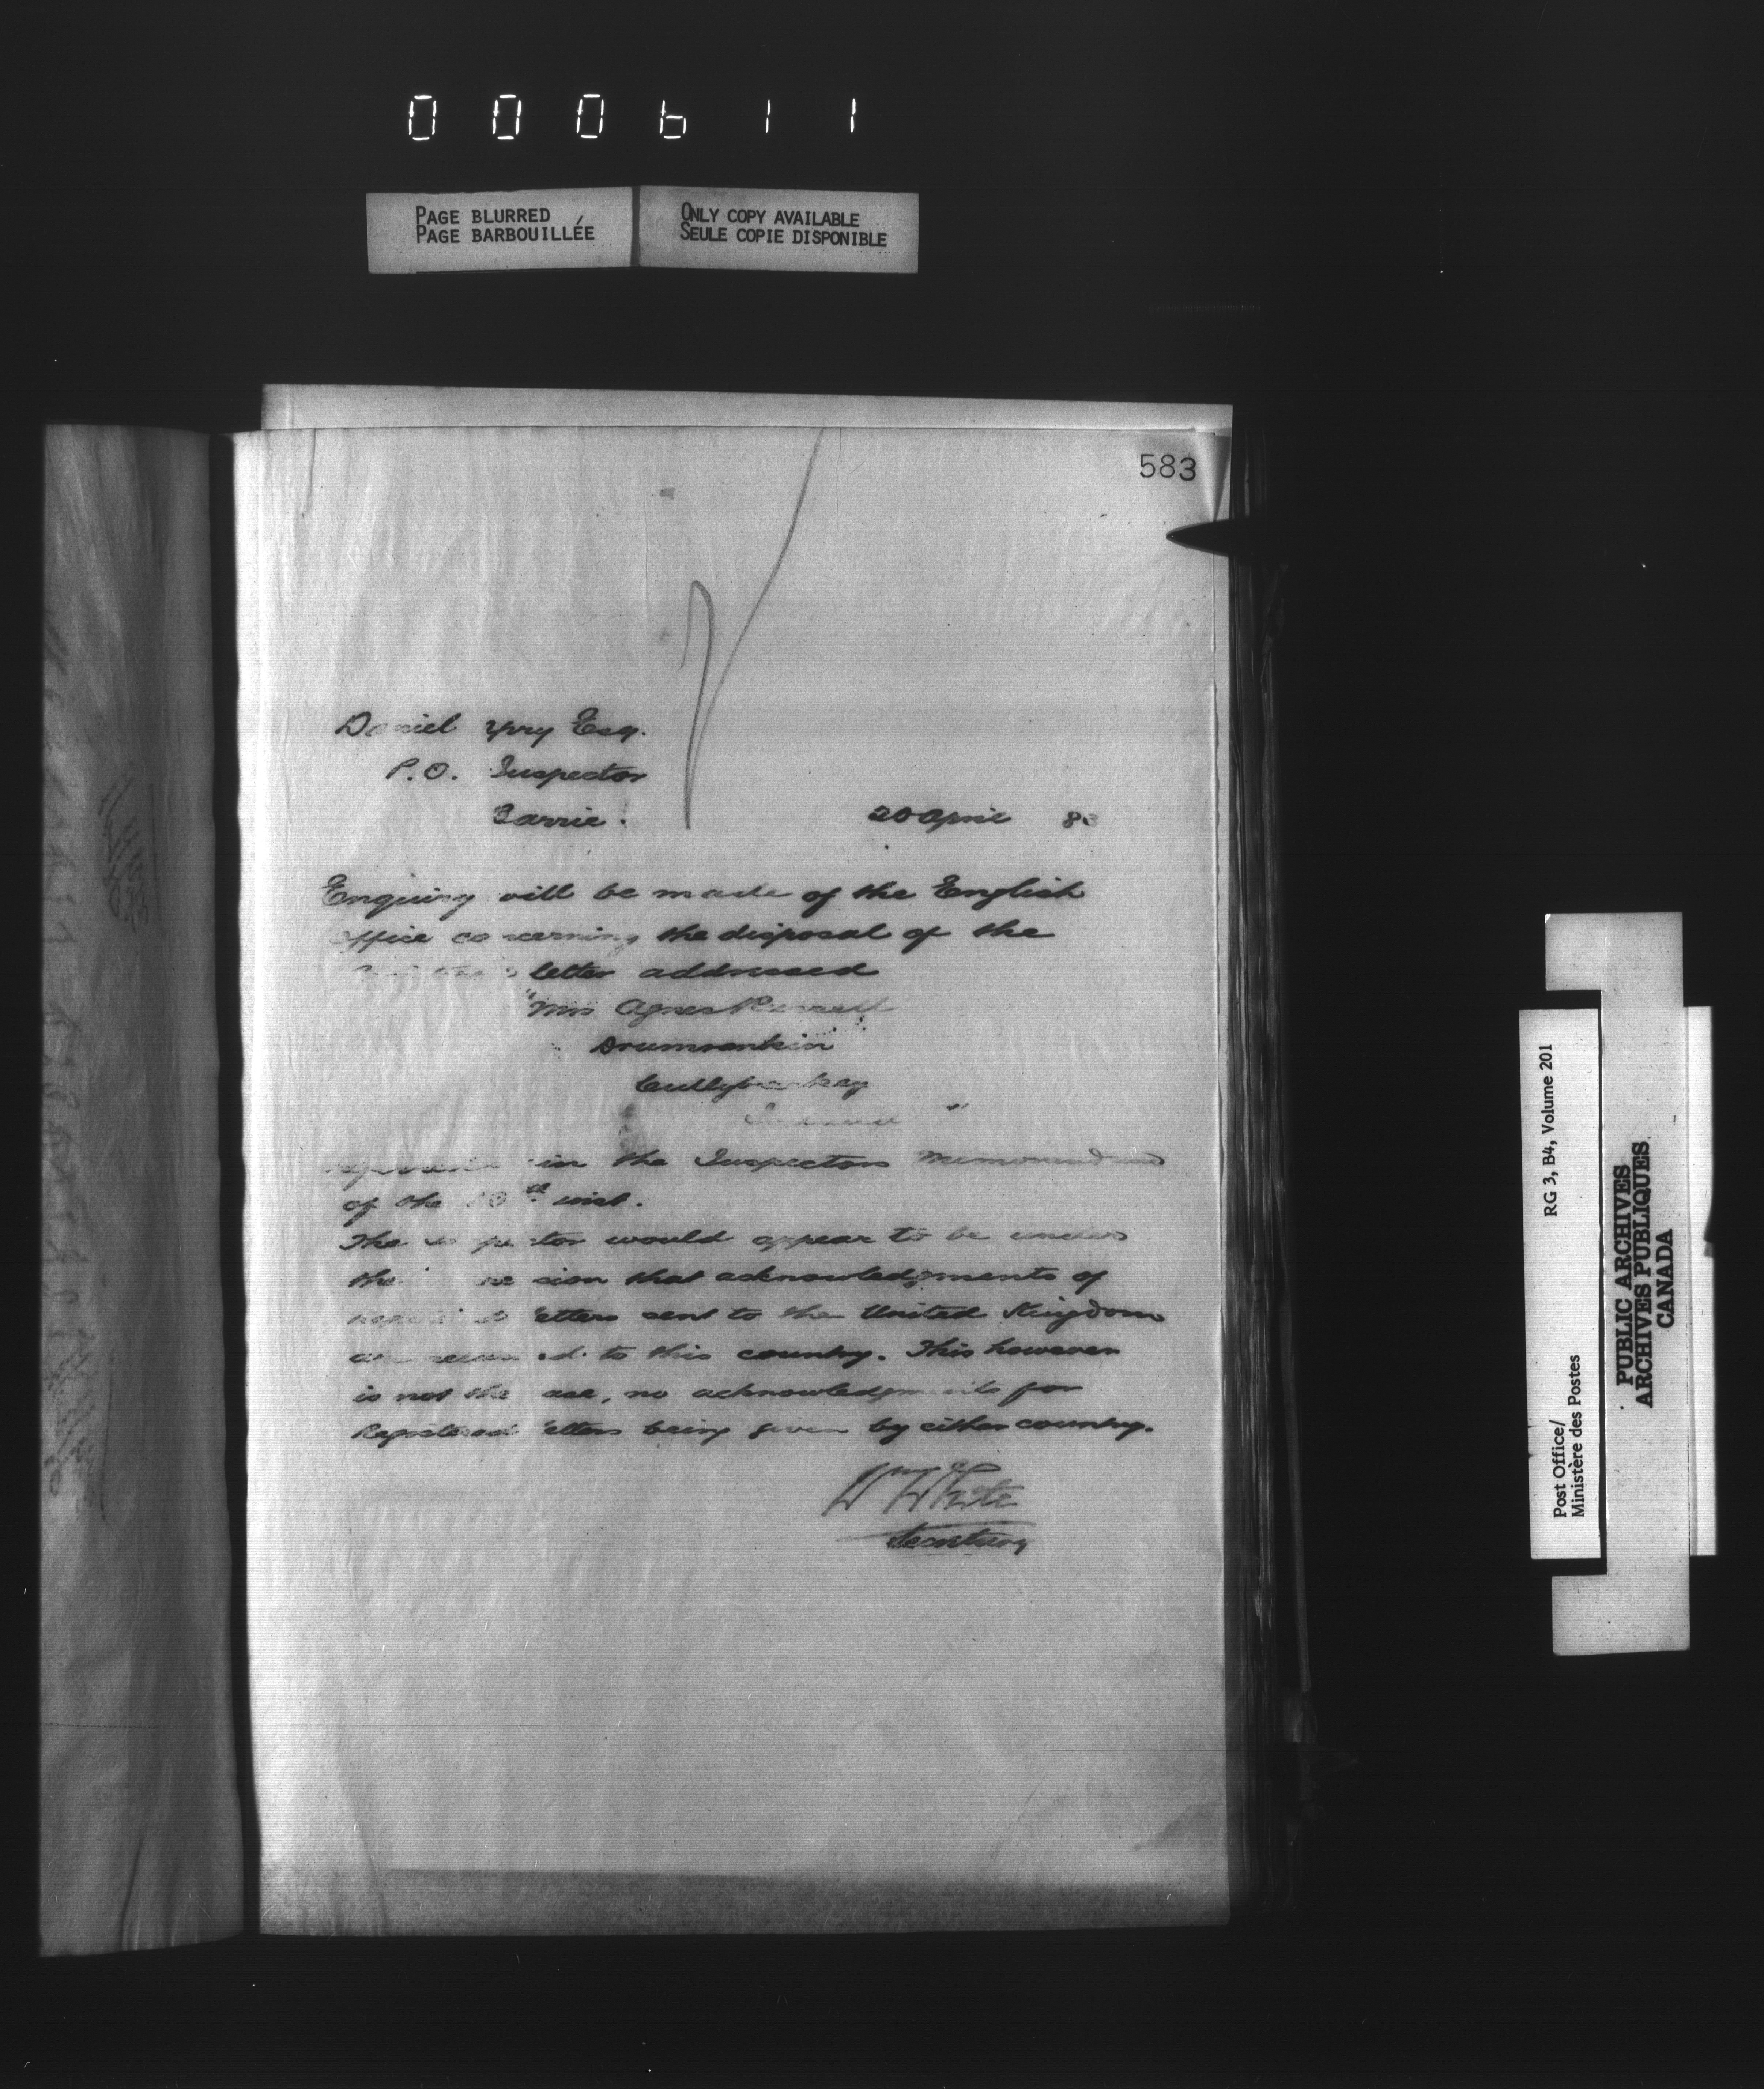 000611
PAGE BLURRED
PAGE BARBOUILLÉE
ONLY COPY AVAILABLE
SEULE COPIE DISPONIBLE
583
Daniel Spry Esq.
P.O. Inspector
Barrie.
20 April 83
Enquiry will be made of the English
Office concerning the disposal of the
letter addressed
"Mrs Agnes
Drumrankin
Cullybackey
Ireland"
in the Inspectors Memorandum
of the inst.
The Inspector would appear to be under
the impression that acknowledgments of
registered letters sent to the United Kingdom
are returned to this country. This however
is not the case, no acknowledgments for
Registered letters being given by either country.
Wm White
Secretary
Post Office/
Ministère des Postes
RG 3, B4, Volume 201
PUBLIC ARCHIVES
ARCHIVES PUBLIQUES
CANADA